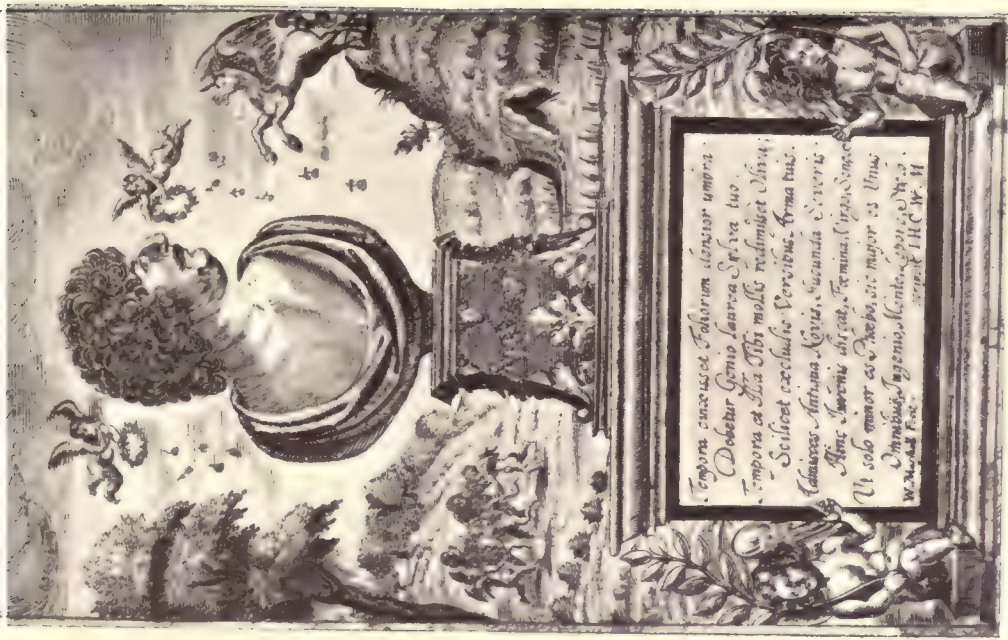 Tempora cinxisset Foliorum densior umbra:
Debetur Genio Laurea Sylva tuo.
Tempora et Illa Tibi mollis redimisset Oliva;
Scilicet excludis Versibus Arma tuis.
Admisces Antiqua Novis, Jucunda Severis:
Hinc Juvenis discat, Fœmina, Virgo, Senex.
Ut solo minor es Phœbo, sic major es Unus
Omnibus, Ingenio, Mente, Lepore, Stylo.
W. Marshall Fecit. scripsit I.H.C. W.M.